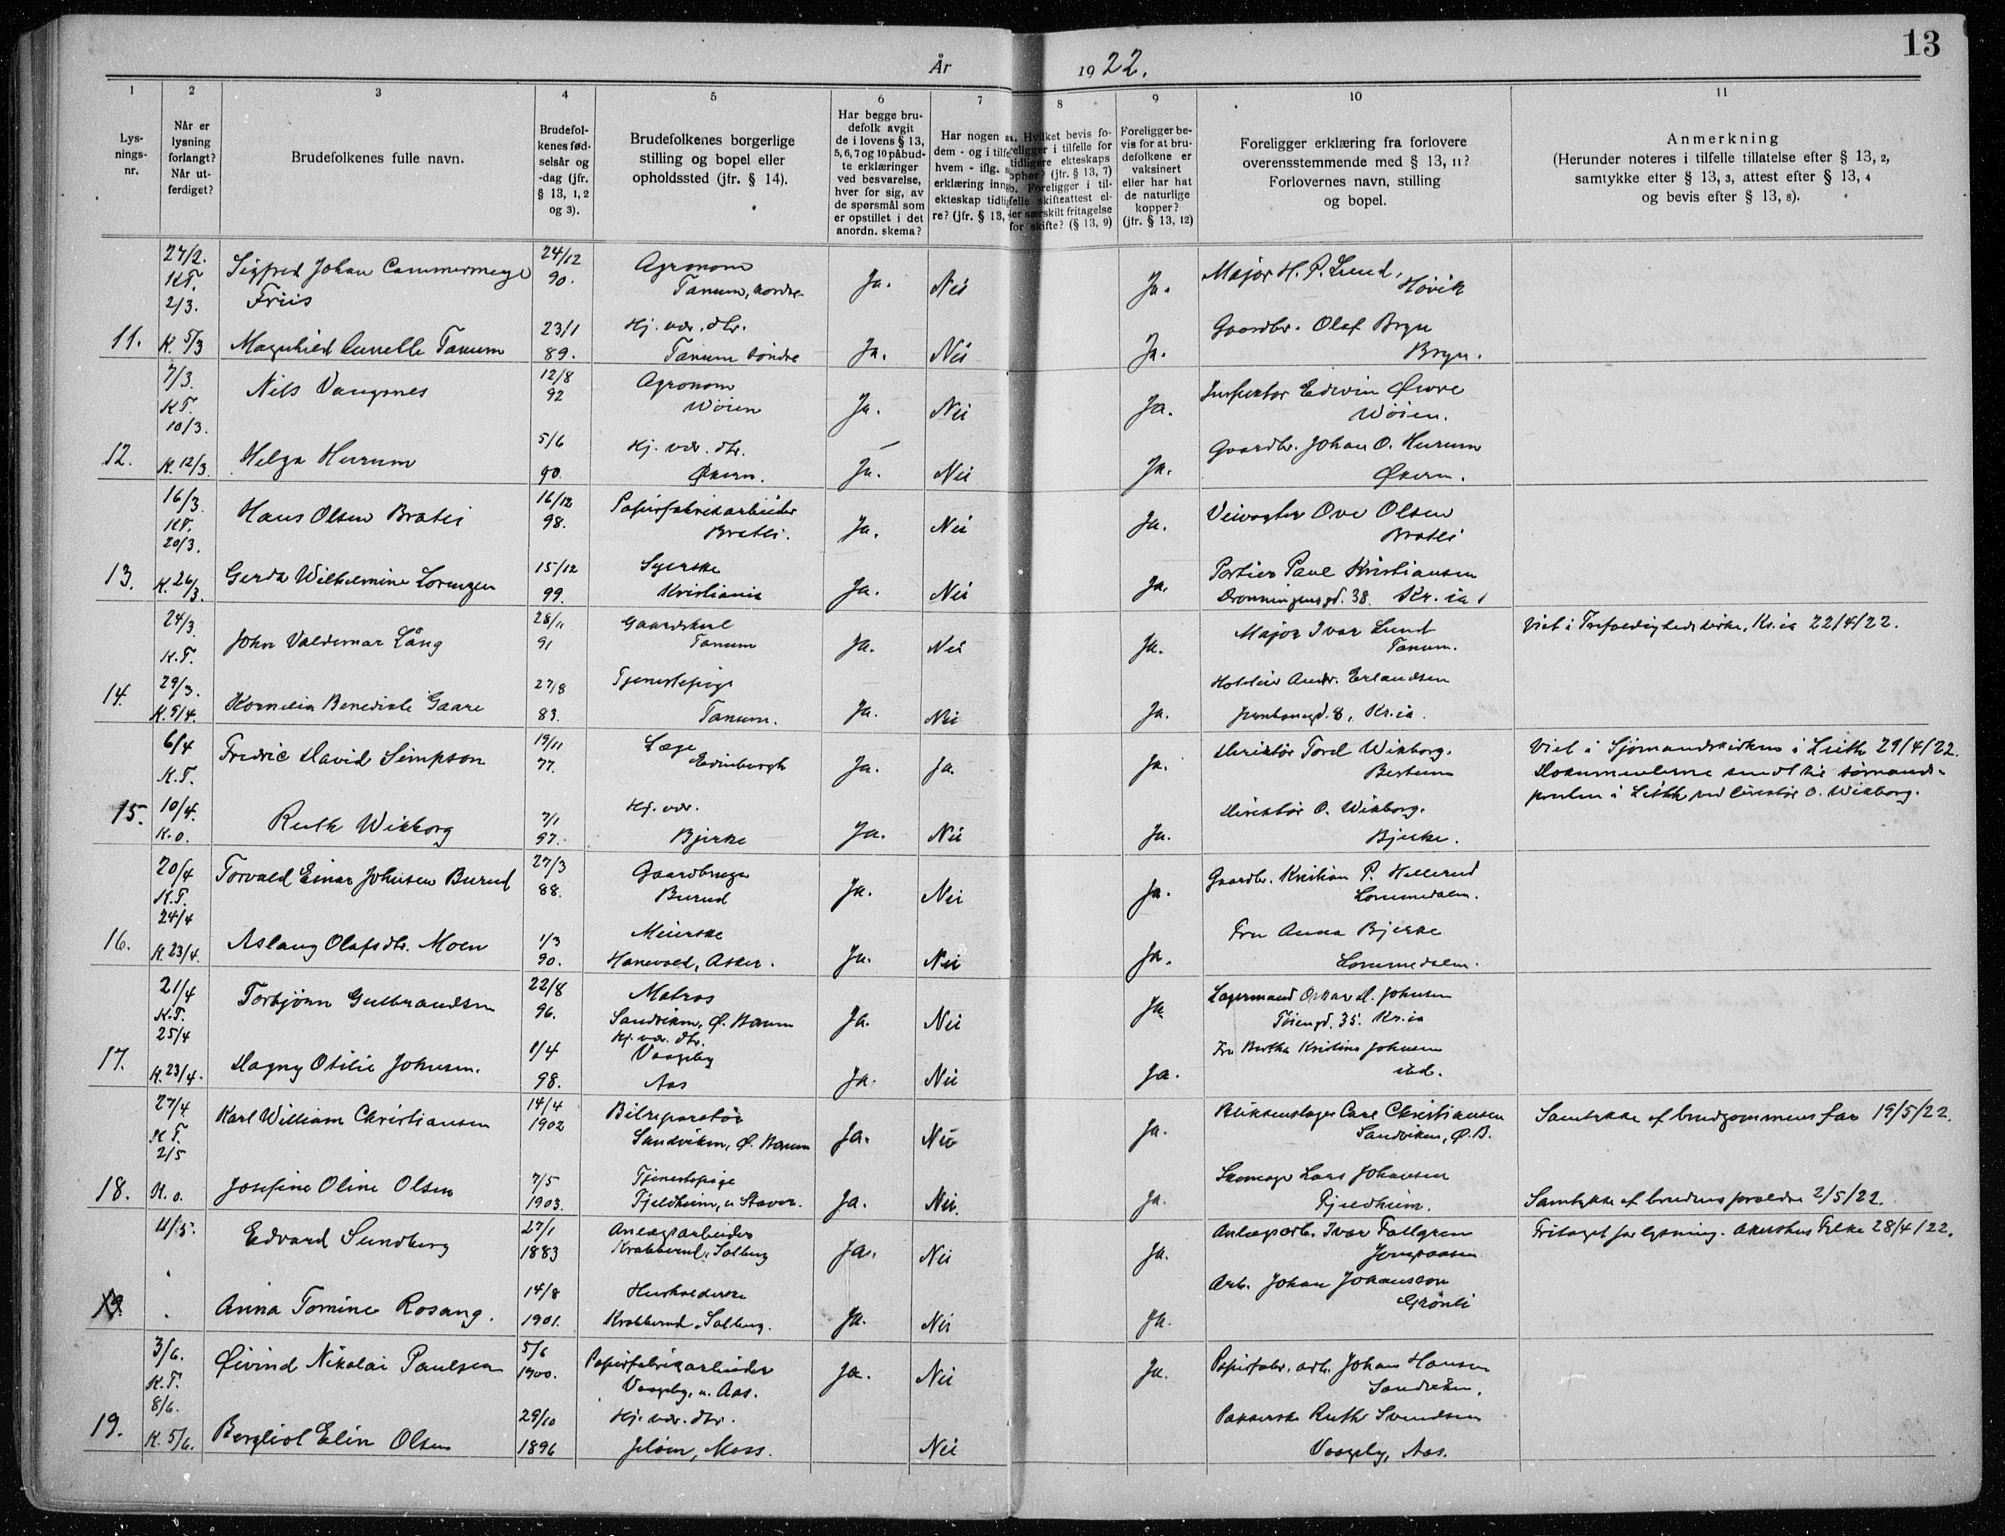 13
År 1922.
1 2 3 4 5 6 7 8 9 10 11
Lys-
nings-
nr.
Når er
lysning
forlangt?
Når ut-
ferdiget?
Brudefolkenes fulle navn.
Brudefol-
kenes fød-
selsår og
-dag (jfr.
§ 13, 1, 2
og 3).
Brudefolkenes borgerlige
stilling og bopel eller
opholdssted (jfr. § 14).
Har begge bru-
defolk avgit
de i lovens § 13,
5, 6, 7 og 10 påbud-
te erklæringer
ved besvarelse,
hver for sig, av
de spørsmål som
er opstillet i det
anordn. skema?
Har nogen a
dem - og i tilfe
hvem - iflg. s
erklæring inng
ekteskap tidlig
re? (jfr. § 13,
a. Hvilket bevis fo-
religger i tilfelle for
tidligere ekteskaps
ophør? (jfr. § 13, 7)
b. Foreligger i til-
felle skifteattest el-
ler særskilt fritagelse
for skifte? (§ 13, 9)
Foreligger be-
vis for at bru-
defolkene er
vaksinert
eller har hat
de naturlige
kopper?
(jfr. § 13, 12)
Foreligger erklæring fra forlovere
overensstemmende med § 13, 11?
Forlovernes navn, stilling
og bopel.
Anmerkning
(Herunder noteres i tilfelle tillatelse efter § 13, 2,
samtykke efter § 13, 3, attest efter § 13, 4
og bevis efter § 13, 8).
27/2. Sigfred Johan Cammermeyer 24/12 Agronom
K.T. Friis 90. Tanum, nordre Ja. Nei Ja. Major H. P. Lund,
2/3. Høvik
11. K. 5/3 Magnhild Aunelle Tanum 23/1 Hj. vær. dtr. Gaardbr. Olaf Bryn
89. Tanum søndre Ja. Nei Ja. Bryn.
7/3. Nils Vangsnes 12/8 Agronom Inspektør Edwin Øwre
K.T. 92 Wøien Ja. Nei Ja. Wøien.
10/3.
12. K. 12/3. Helga Hurum 5/6 Hj. vær. dtr. Gaardbr. Johan O. Hurum
90. Økern. Ja. Nei Ja. Økern.
16/3 Hans Olsen Bratli 16/12 Papirfabrikarbeider Veivogter Ove Olsen
K.T. 98. Bratli. Ja. Nei Ja. Bratli
20/3.
13. K. 26/3. Gerda Wilhelmine Lorenzen 15/12 Syerske Portier Paul Kristiansen
99. Kristiania Ja. Nei Ja. Dronningensgd. 38. Kr.ia
24/3. John Valdemar Lång 28/11 Gaardskarl Major Ivar Lund Viet i Trefoldighedskirke, Kr.ia 22/4/22.
K.T. 91 Tanum Ja. Nei Ja. Tanum.
14. 29/3. Kornelia Benedikte Gaare 27/8 Tjenestepige Andr. Erlandsen
K. 9/4. 83. Tanum. Ja. Nei Ja. Jernbanegd. 8, Kr.ia.
6/4 Fredric David Simpson 19/11 Læge Direktør Tord Wikborg. Viet i Sjømandskirken i Leith 29/4/22.
K.T. 77. Edinburgh Ja. Ja. Ja. Bestum Dokumenterne sendt til sømands-
15. 10/4. Ruth Wikborg 7/1 Hj. vær. Direktør O. Wikborg. presten i Leith ved direktør O. Wikborg.
K.o. 97. Bjerke Ja. Nei Ja. Bjerke.
20/4 Torvald Einar Johnsen Burud 27/3 Gaardbruger Gaardbr. Kristian P. Hellerud
K.T. 88. Burud Ja. Nei Ja. Lommedalen.
24/4
16. K. 23/4. Aslaug Olafsdtr. Moen 1/3 Meierske Fru Anna Bjerke
90. Hanevold, Asker. Ja. Nei Ja. Lommedalen.
21/4 Torbjørn Gulbrandsen 22/8 Matros Lagermand Oskar M. Johnsen
K.T. 96. Sandviken, Ø. Bærum Ja. Nei Ja. Tøiengd. 35. Kr.ia
25/4 Hj. vær. dtr.
17. K. 23/4. Dagny Otilie Johnsen. 1/4 Vaageby Fru Bertha Kristine Johnsen
98. Aas Ja. Nei Ja. ibd.
27/4. Karl William Christiansen 14/4 Bilreparatør Blikkenslager Carl Christiansen Samtykke af brudgommens far 19/5/22.
K.T. 1902 Sandviken, Ø. Bærum Ja. Nei Ja. Sandviken, Ø. B.
2/5
18. K.o. Josefine Oline Olsen 7/5 Tjenestepige Skomager Lars Johansen
1903. Fjeldheim, Ja. Nei. Ja. Fjeldheim. Samtykke af brudens forældre 2/5/22.
11/5. Edvard Sundberg 27/1 Anlægsarbeider Anlægsarb. Ivar Fallgren Fritaget for lysning. Akershus Fylke 28/4/22.
1883 Krabberud, Solberg Ja. Nei Ja. Jongsaasen
19. Anna Tomine Rosang. 14/8 Husholderske Arb. Johan Johansson
1901. Krabberud, Solberg. Ja. Nei Ja. Grønli
3/6. Øivind Nikolai Paulsen 5/6 Papirfabrikarbeider Papirfabr. arb. Johan Hansen
K.T. 1900. Vaageby, Aas. Ja. Nei Ja. Sandviken.
8/6.
19. K. 5/6. Bergliot Elin Olsen 29/10 Hj. vær. dtr. Pakkerske Ruth Svendsen
1896 Jeløen, Moss. Nei Vaageby, Aas.